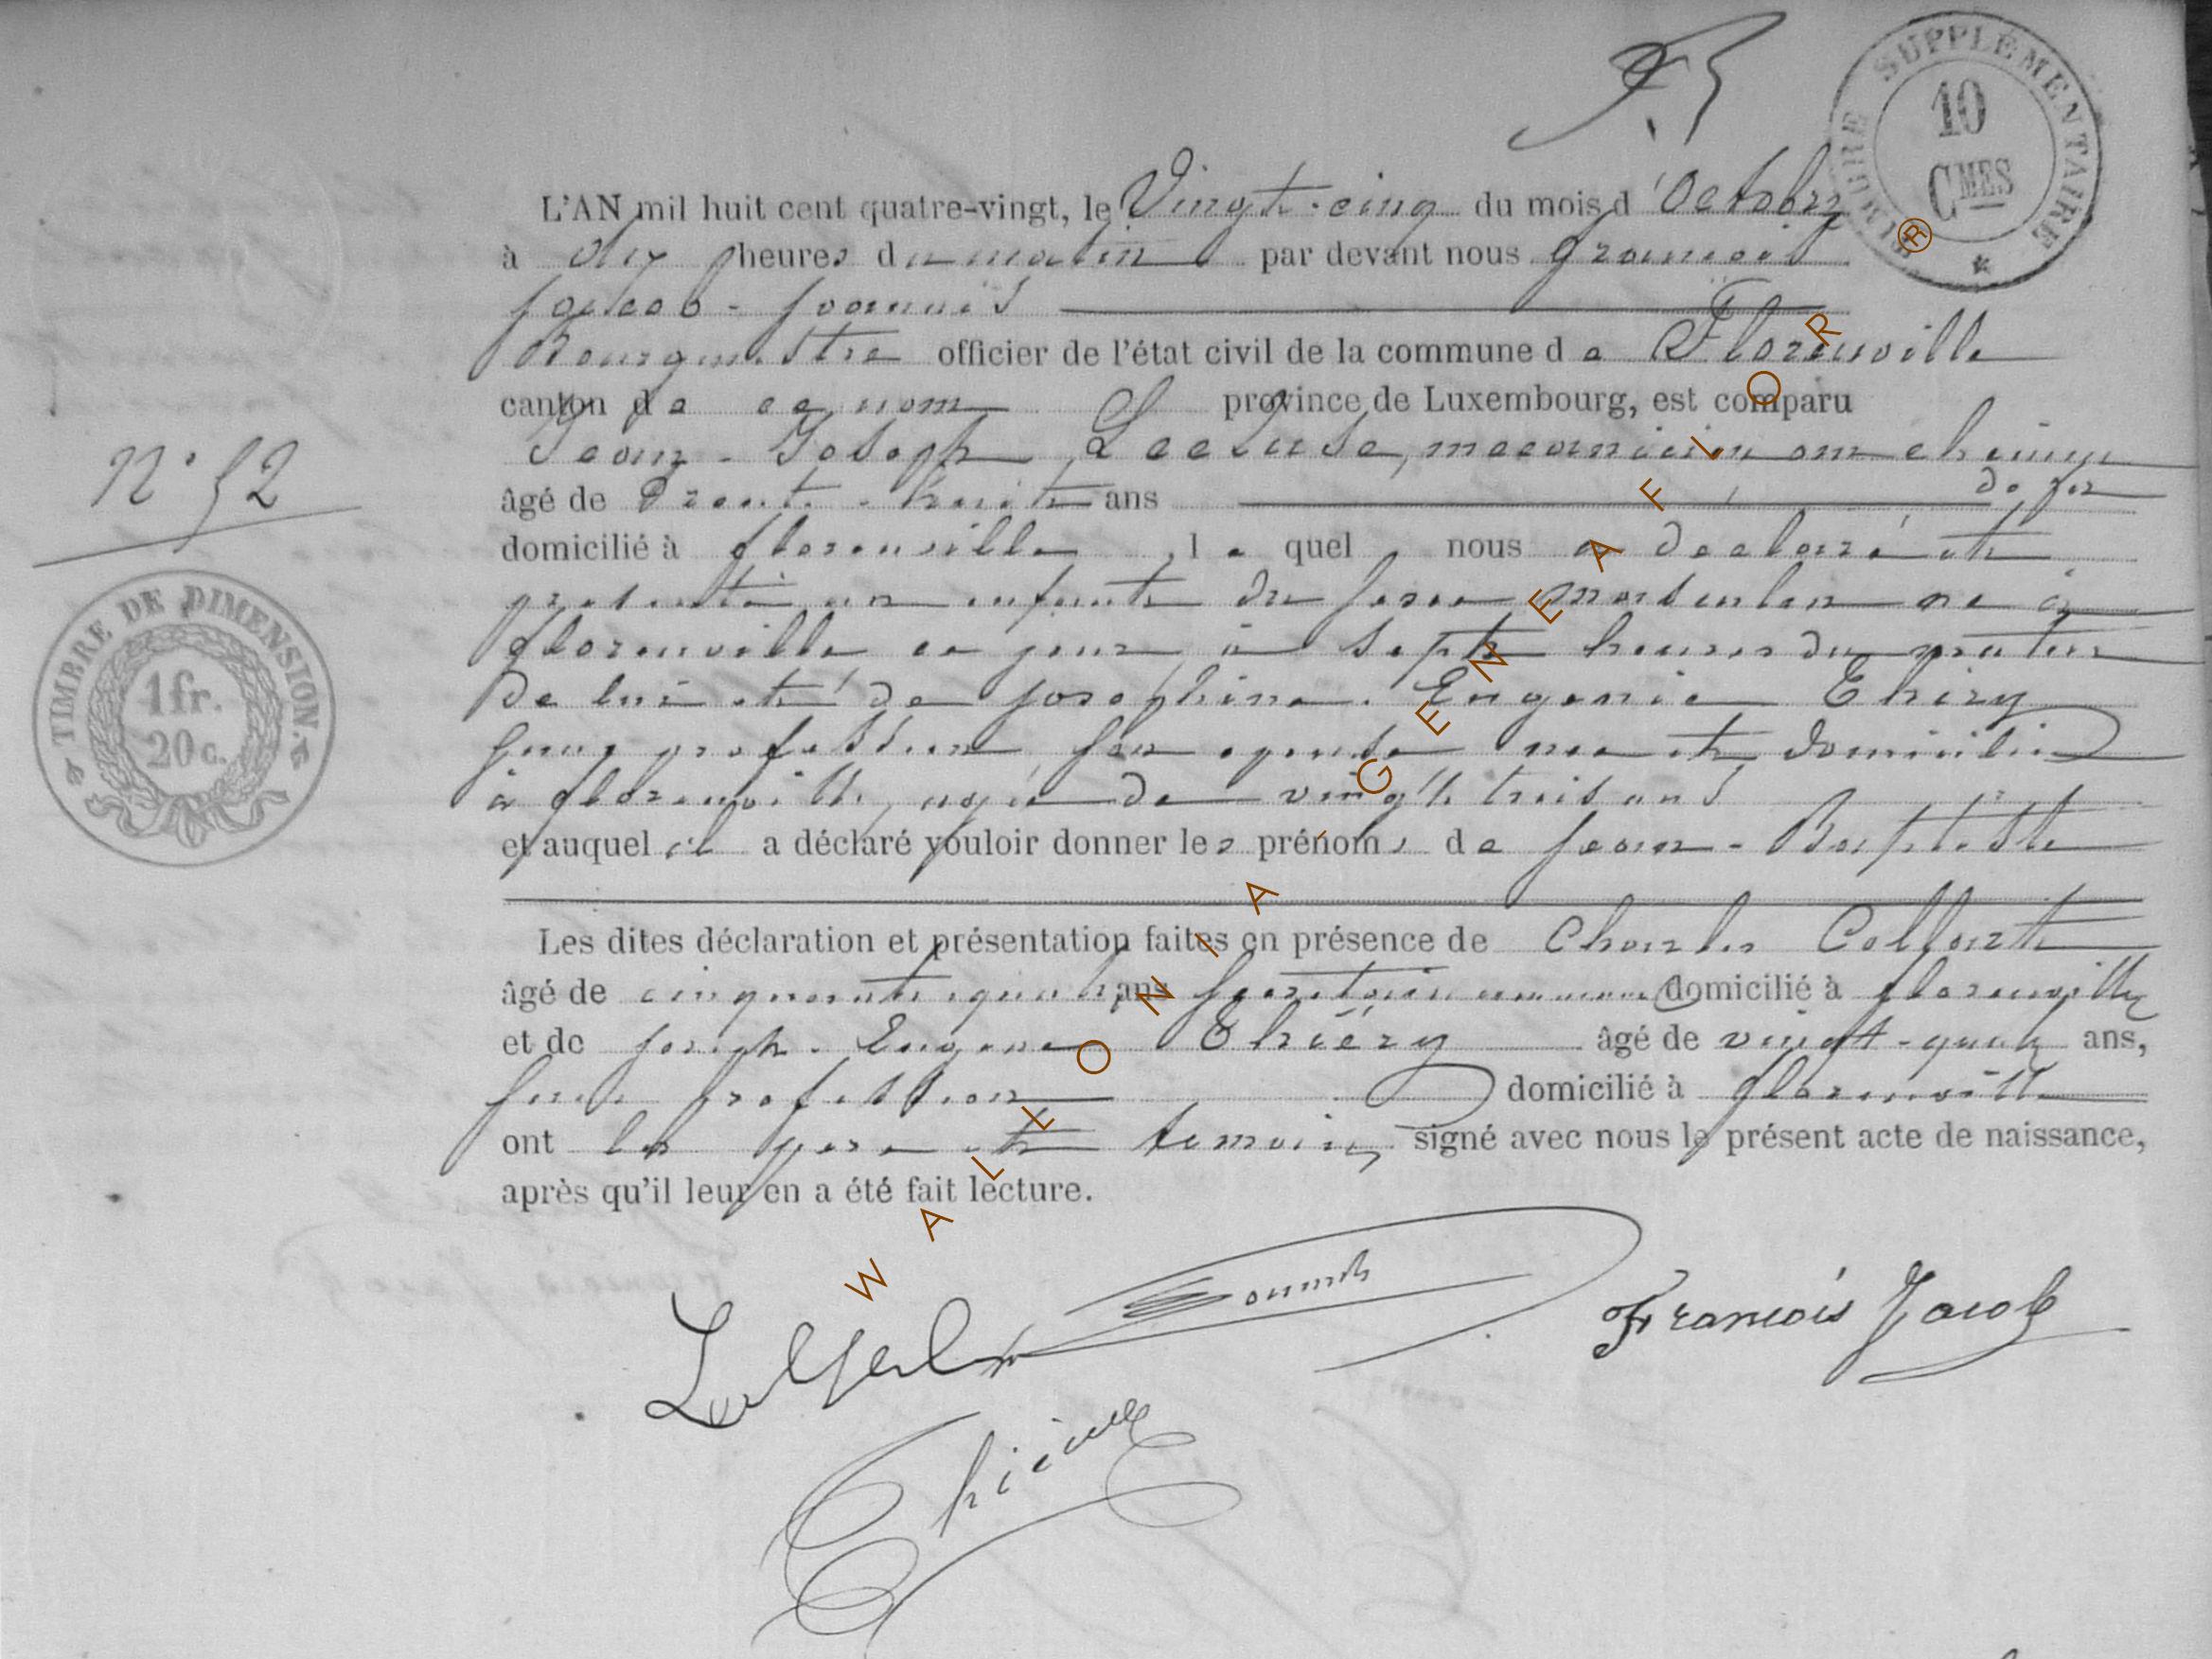 SUPPLÉMENTAIRE
TIMBRE
10
CMES
L'AN mil huit cent quatre-vingt, le Vingt-cinq du mois d'Octobre
à dix heures du matin par devant nous
Jacob
Bourgmestre officier de l'état civil de la commune de Florenville
canton de ce nom province de Luxembourg, est comparu
Jean-Joseph mecanicien au chemin
de fer
âgé de Trente-huit ans
domicilié à florenville, lequel nous a declaré et
présenté un enfant du sexe masculin né à
florenville ce jour à sept heures du matin
de lui et de Josephine Eugenie Thiry
sans profession son épouse née et domiciliée
à florenville, agée de vingt trois ans
et auquel il a déclaré vouloir donner les prénoms de Jean-Baptiste
Les dites déclaration et présentation faites en présence de Charles Collart
âgé de cinquante quatre ans Secrétaire communal domicilié à florenville
et de Joseph Eugene Thiéry âgé de vingt-quatre ans,
sans profession domicilié à florenville
ont les père et temoins signé avec nous le présent acte de naissance,
après qu'il leur en a été fait lecture.
N° 52
TIMBRE DE DIMENSION.
1 fr.
20 c.
François Jacob
WALLONIA ' GENEAFLOR ®